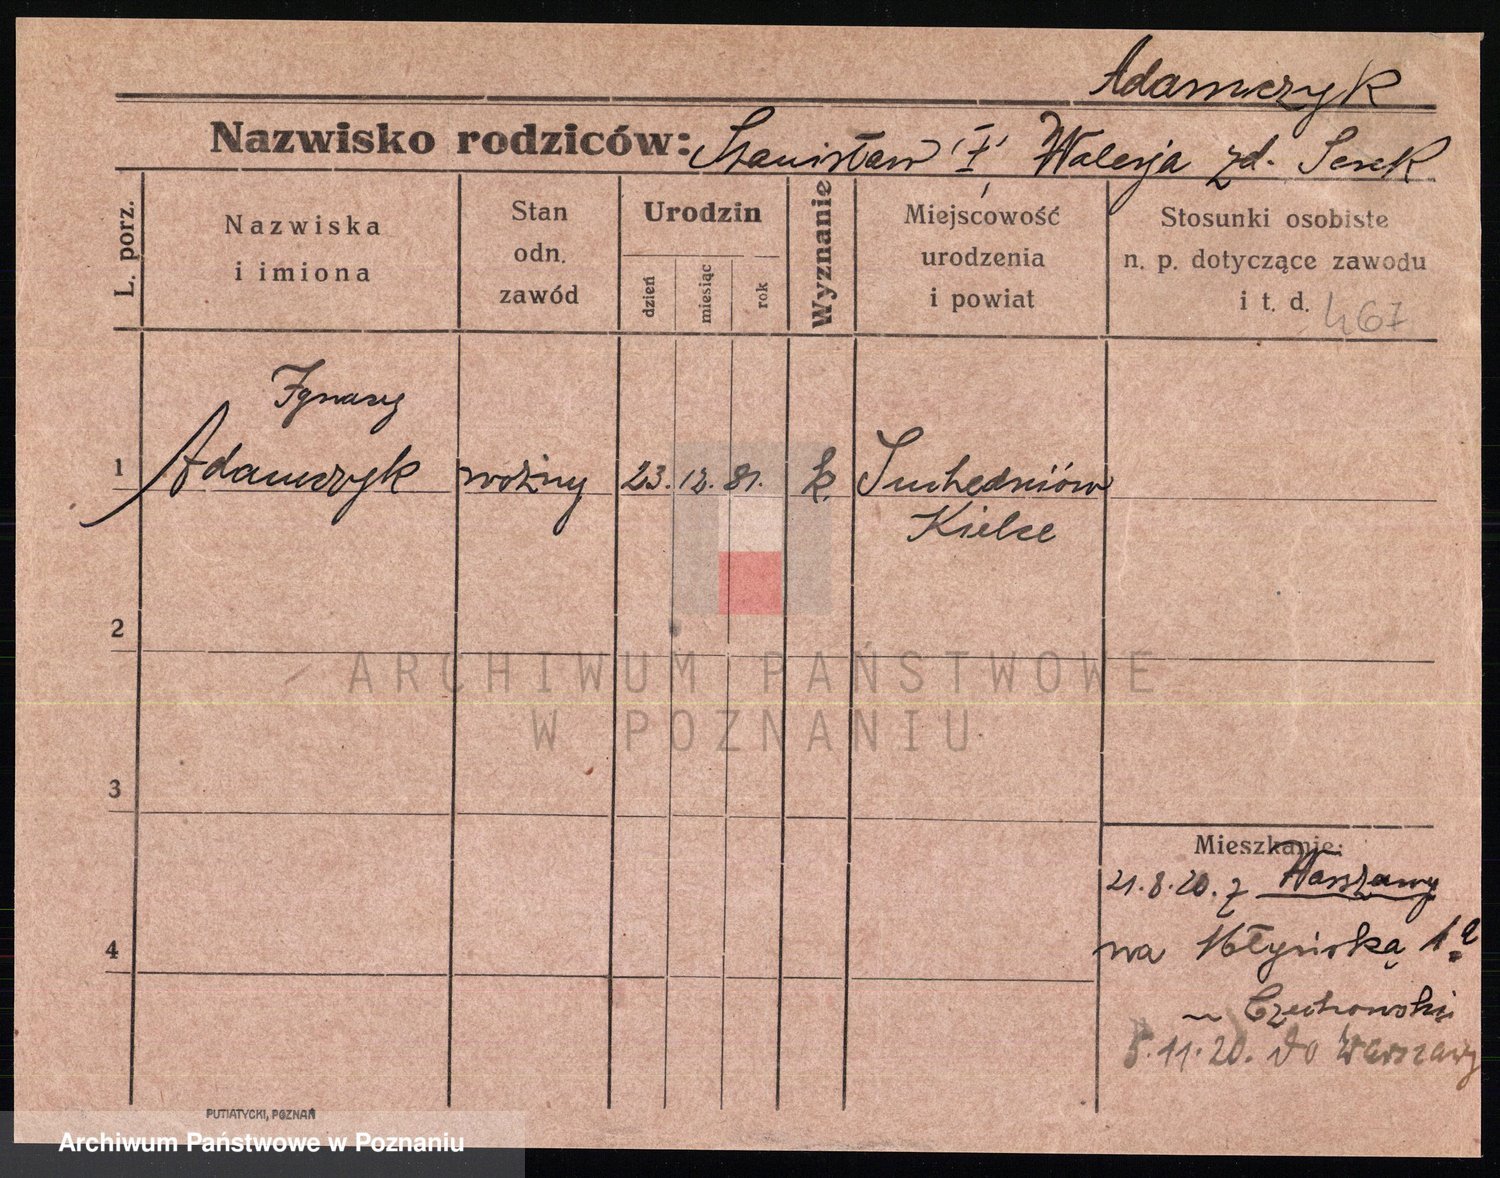 Adamczyk
Nazwisko rodziców: Stanisław i Walerja zd. Serek
L. porz.
Nazwiska i imiona
Stan odn. zawód
Urodzin
dzień
miesiąc
rok
Wyznanie
Miejscowość urodzenia i powiat
Stosunki osobiste n. p. dotyczące zawodu i t. d.
467
Ignacy
1 Adamczyk woźny 23. 12. 81. k. Suchedniów
Kielce
2
3
4
Mieszkanie:
21.8.20. z Warszawy
na Młyńską 1a
Czechowski
5.11.20. do Warszawy
PUTIATYCKI, POZNAŃ
ARCHIWUM PAŃSTWOWE
W POZNANIU
Archiwum Państwowe w Poznaniu